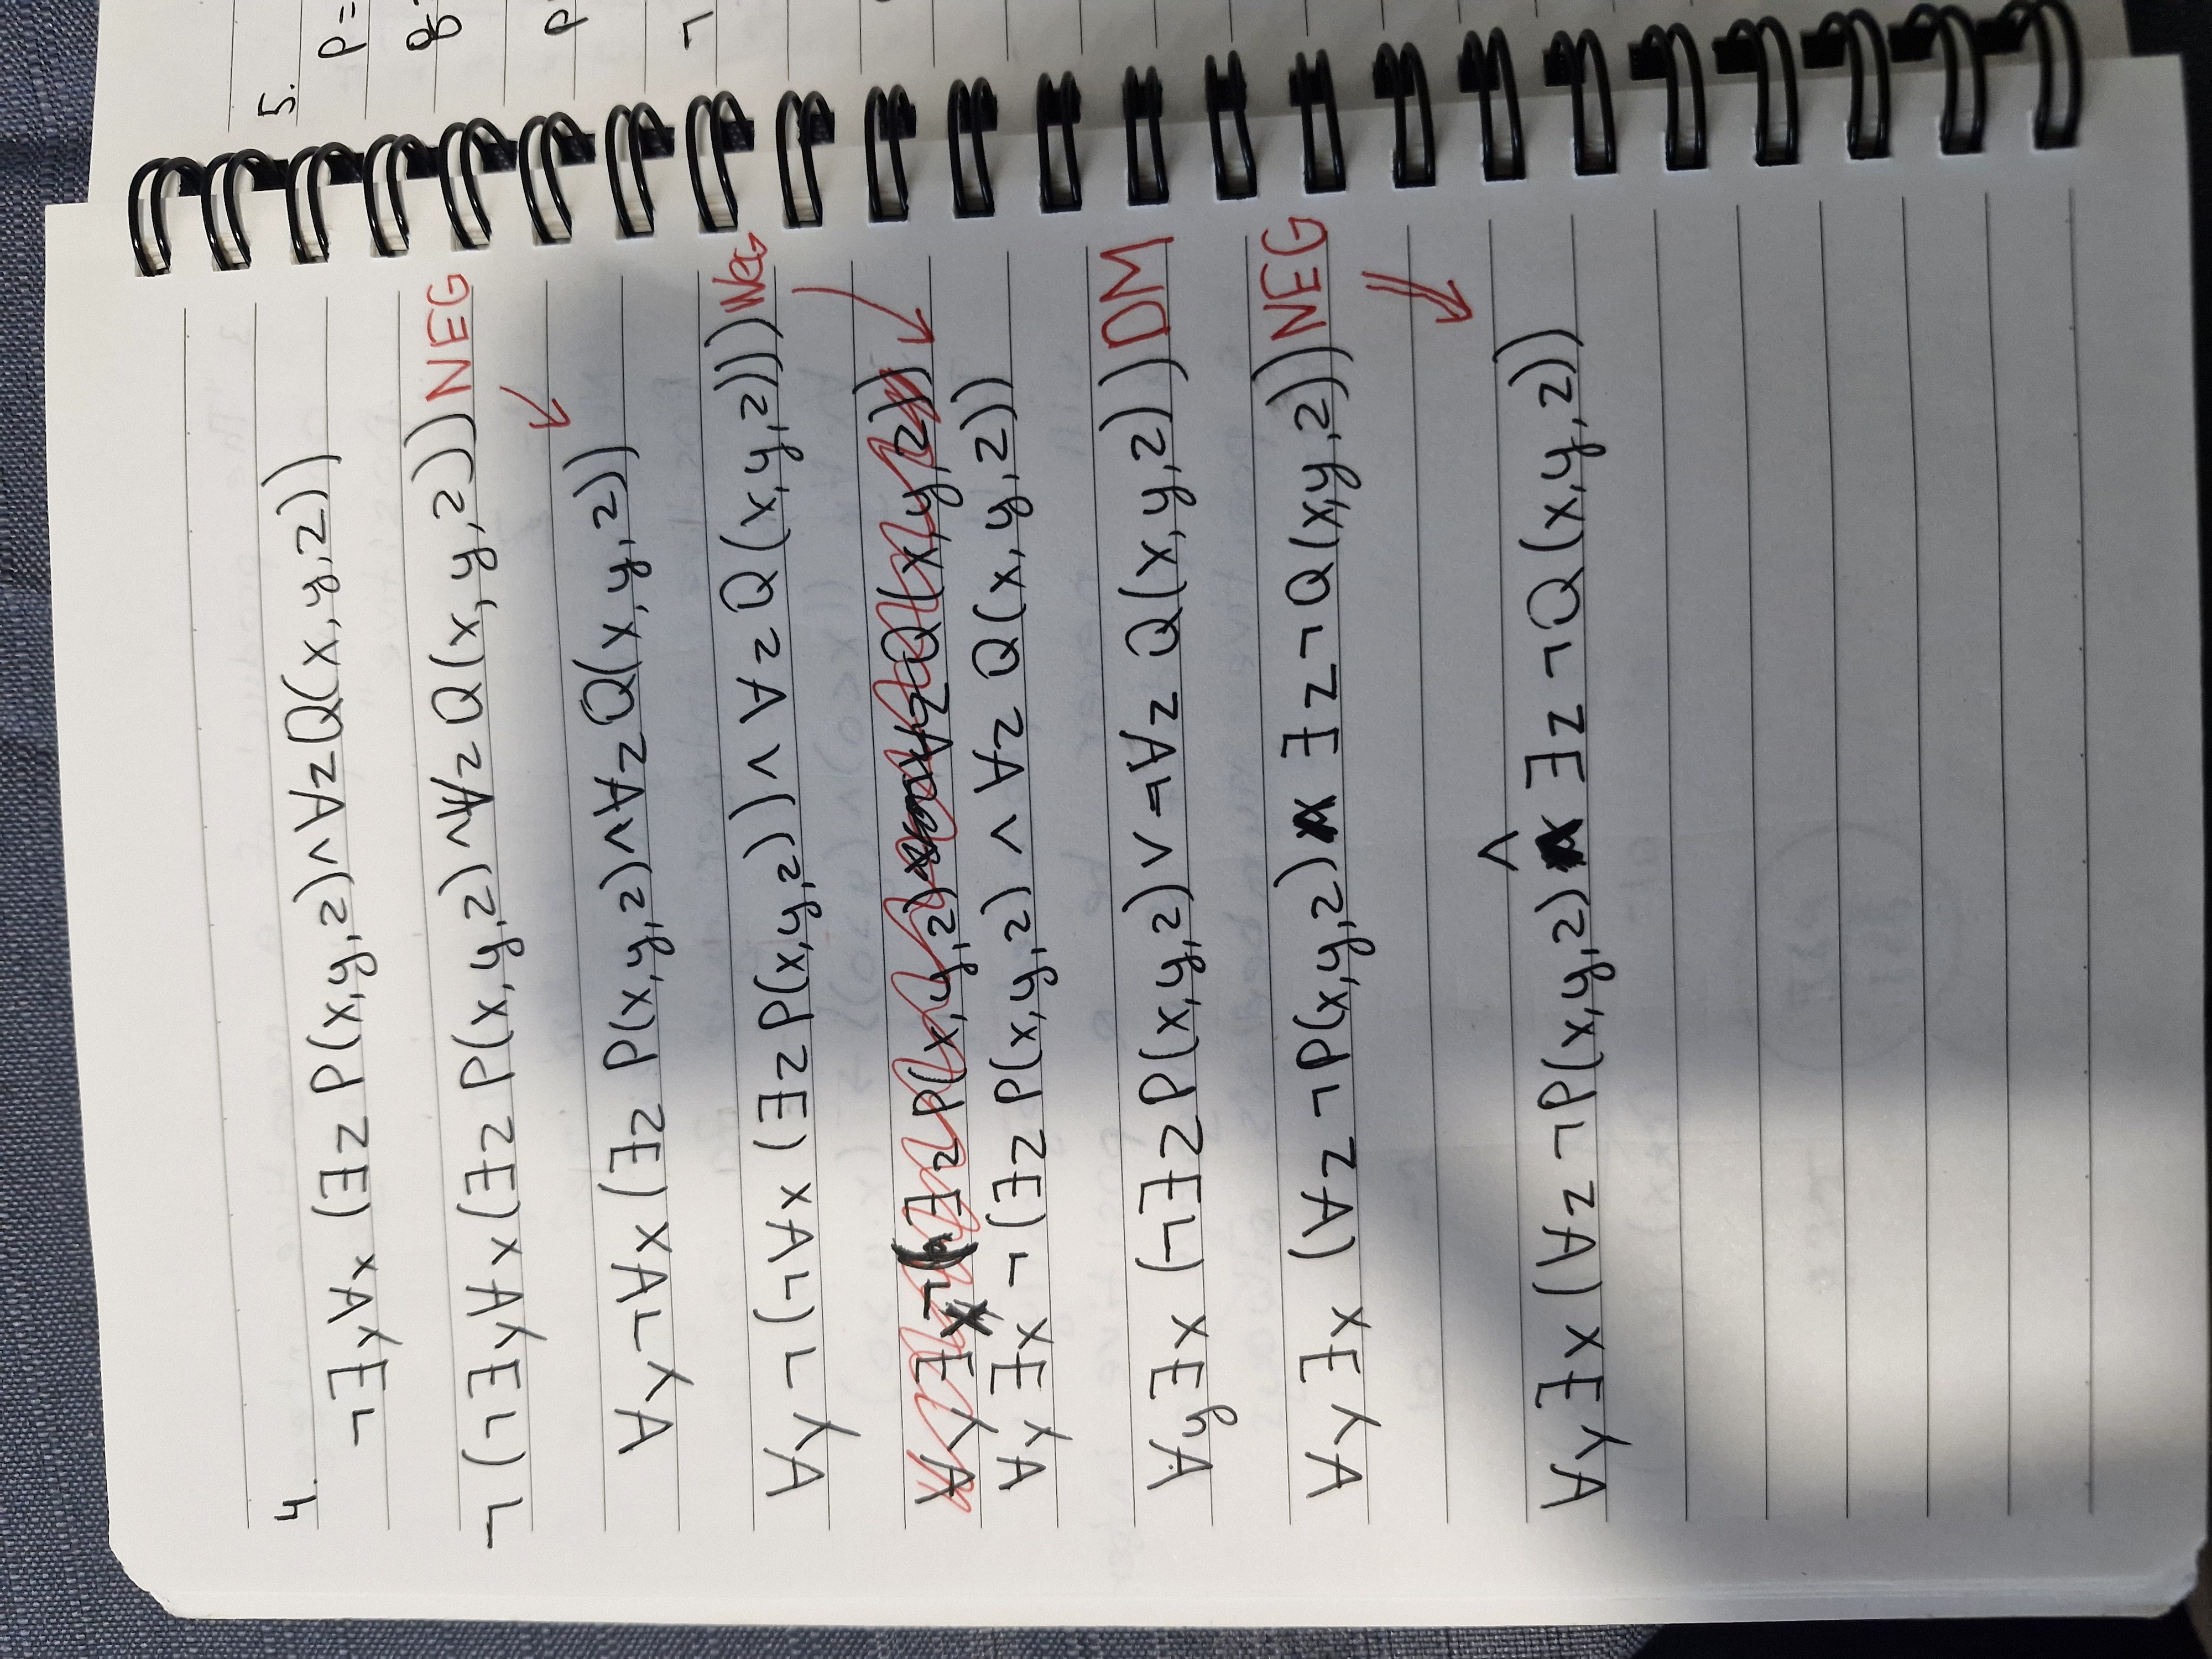 4.
¬∃y∀x (∃z P(x,y,z)∧∀zQ(x,y,z))
¬(¬∃y∀x(∃z P(x,y,z)∧∀z Q(x,y,z))) NEG
∀y¬∀x(∃z P(x,y,z)∧∀z Q(x,y,z))
∀y¬(¬∀x (∃z P(x,y,z))∧ ∀z Q(x,y,z))) NeG
∀y ∃x ¬(∃z P(x,y,z) ∀z Q(x,y,z))
∀y ∃x ¬(∃z P(x,y,z) ∧ ∀z Q(x,y,z))
∀y ∃x (¬∃z P(x,y,z) ∨ ¬∀z Q(x,y,z)) DM
∀y ∃x (∀z ¬P(x,y,z) ∃z ¬Q(x,y,z)) NEG
∧
∀y ∃x (∀z ¬P(x,y,z) ∃z ¬Q(x,y,z))
5.
P=
P
¬